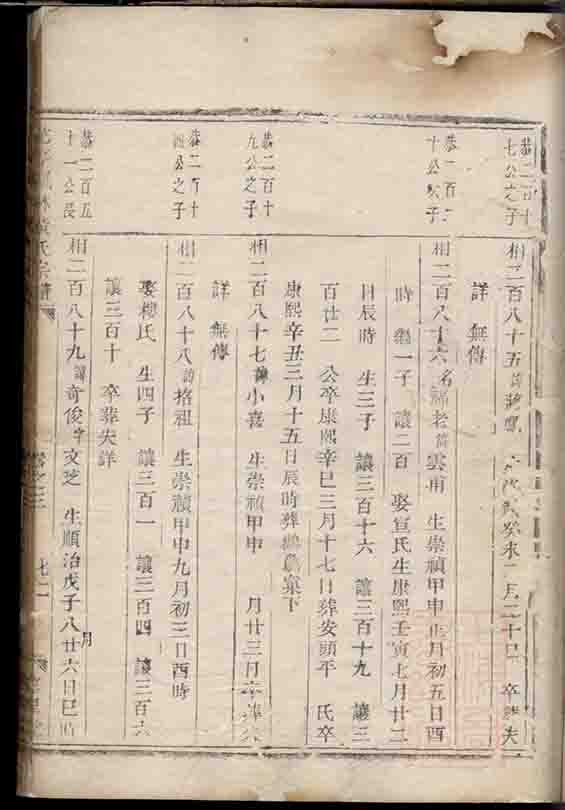 恭二百十
七公之子
相二百八十五 諱 癸未二月二十巳 卒葬失
詳 無傳
恭二百二
十公次子
相二百八十六 名福老 諱雲甫 生崇禎甲申正月初五日酉
時 繼一子 讓二百 娶宣氏生康熙壬寅七月廿二
日辰時 生三子 讓三百十六 讓三百十九 讓三
百廿二 公卒康熙辛巳三月十七日葬安頭平 氏卒
康熙辛丑三月十五日辰時葬 下
恭二百十
九公之子
相二百八十七 諱小喜 生崇禎甲申 月廿三日 卒葬失
詳 無傳
恭二百十
四公之子
相二百八十八 諱格祖 生崇禎甲申九月初三日酉時
娶柳氏 生四子 讓三百一 讓三百四 讓三百六
讓三百十 卒葬失詳
恭二百五
十一公長
相二百八十九 諱奇俊 字文芝 生順治戊子八月廿六日巳時
氏宗譜 卷之三